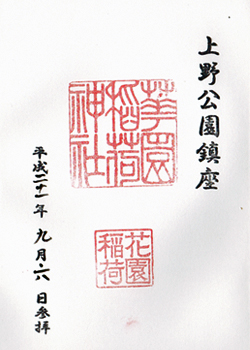 上野公園鎮座
華園稲荷神社
花園稲荷
平成二十一年九月六日参拝